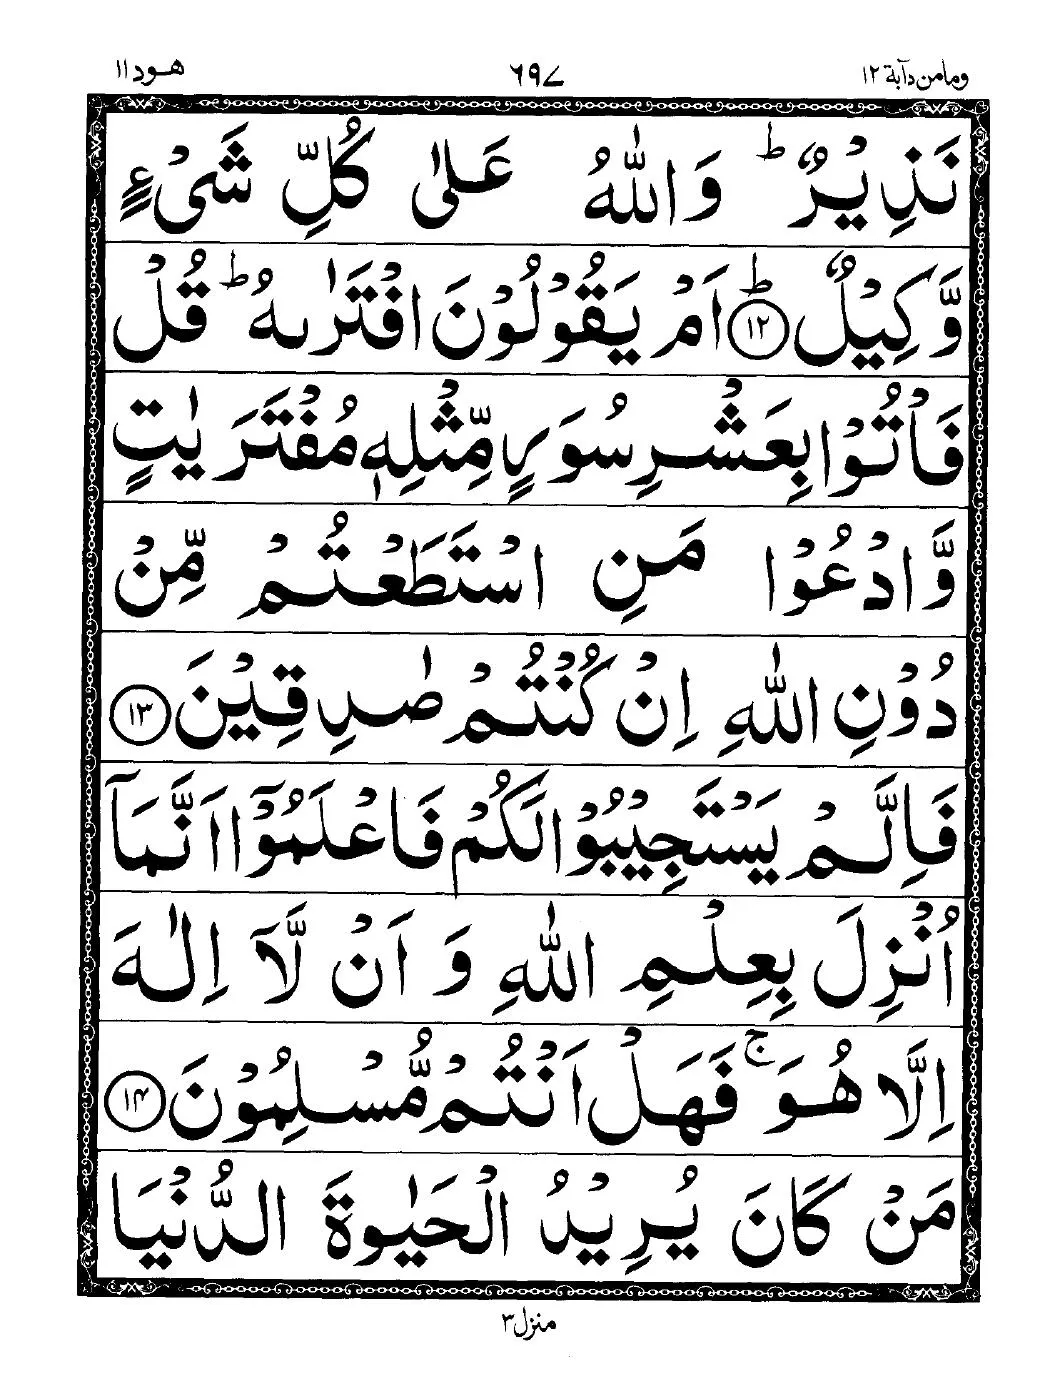 ومامن دآبة ١٢
٦٩٧
هود ١١
نَذِيْرٌ ؕ وَاللّٰهُ عَلٰى كُلِّ شَيْءٍ
وَّكِيْلٌ ؕ ﴿١٢﴾ اَمْ يَقُوْلُوْنَ افْتَرٰىهُ ؕ قُلْ
فَاْتُوْا بِعَشْرِ سُوَرٍ مِّثْلِهٖ مُفْتَرَيٰتٍ
وَّادْعُوْا مَنِ اسْتَطَعْتُمْ مِّنْ
دُوْنِ اللّٰهِ اِنْ كُنْتُمْ صٰدِقِيْنَ ﴿١٣﴾
فَاِلَّمْ يَسْتَجِيْبُوْا لَكُمْ فَاعْلَمُوْٓا اَنَّمَآ
اُنْزِلَ بِعِلْمِ اللّٰهِ وَ اَنْ لَّآ اِلٰهَ
اِلَّا هُوَ ۚ فَهَلْ اَنْتُمْ مُّسْلِمُوْنَ ﴿١٤﴾
مَنْ كَانَ يُرِيْدُ الْحَيٰوةَ الدُّنْيَا
منزل ٣